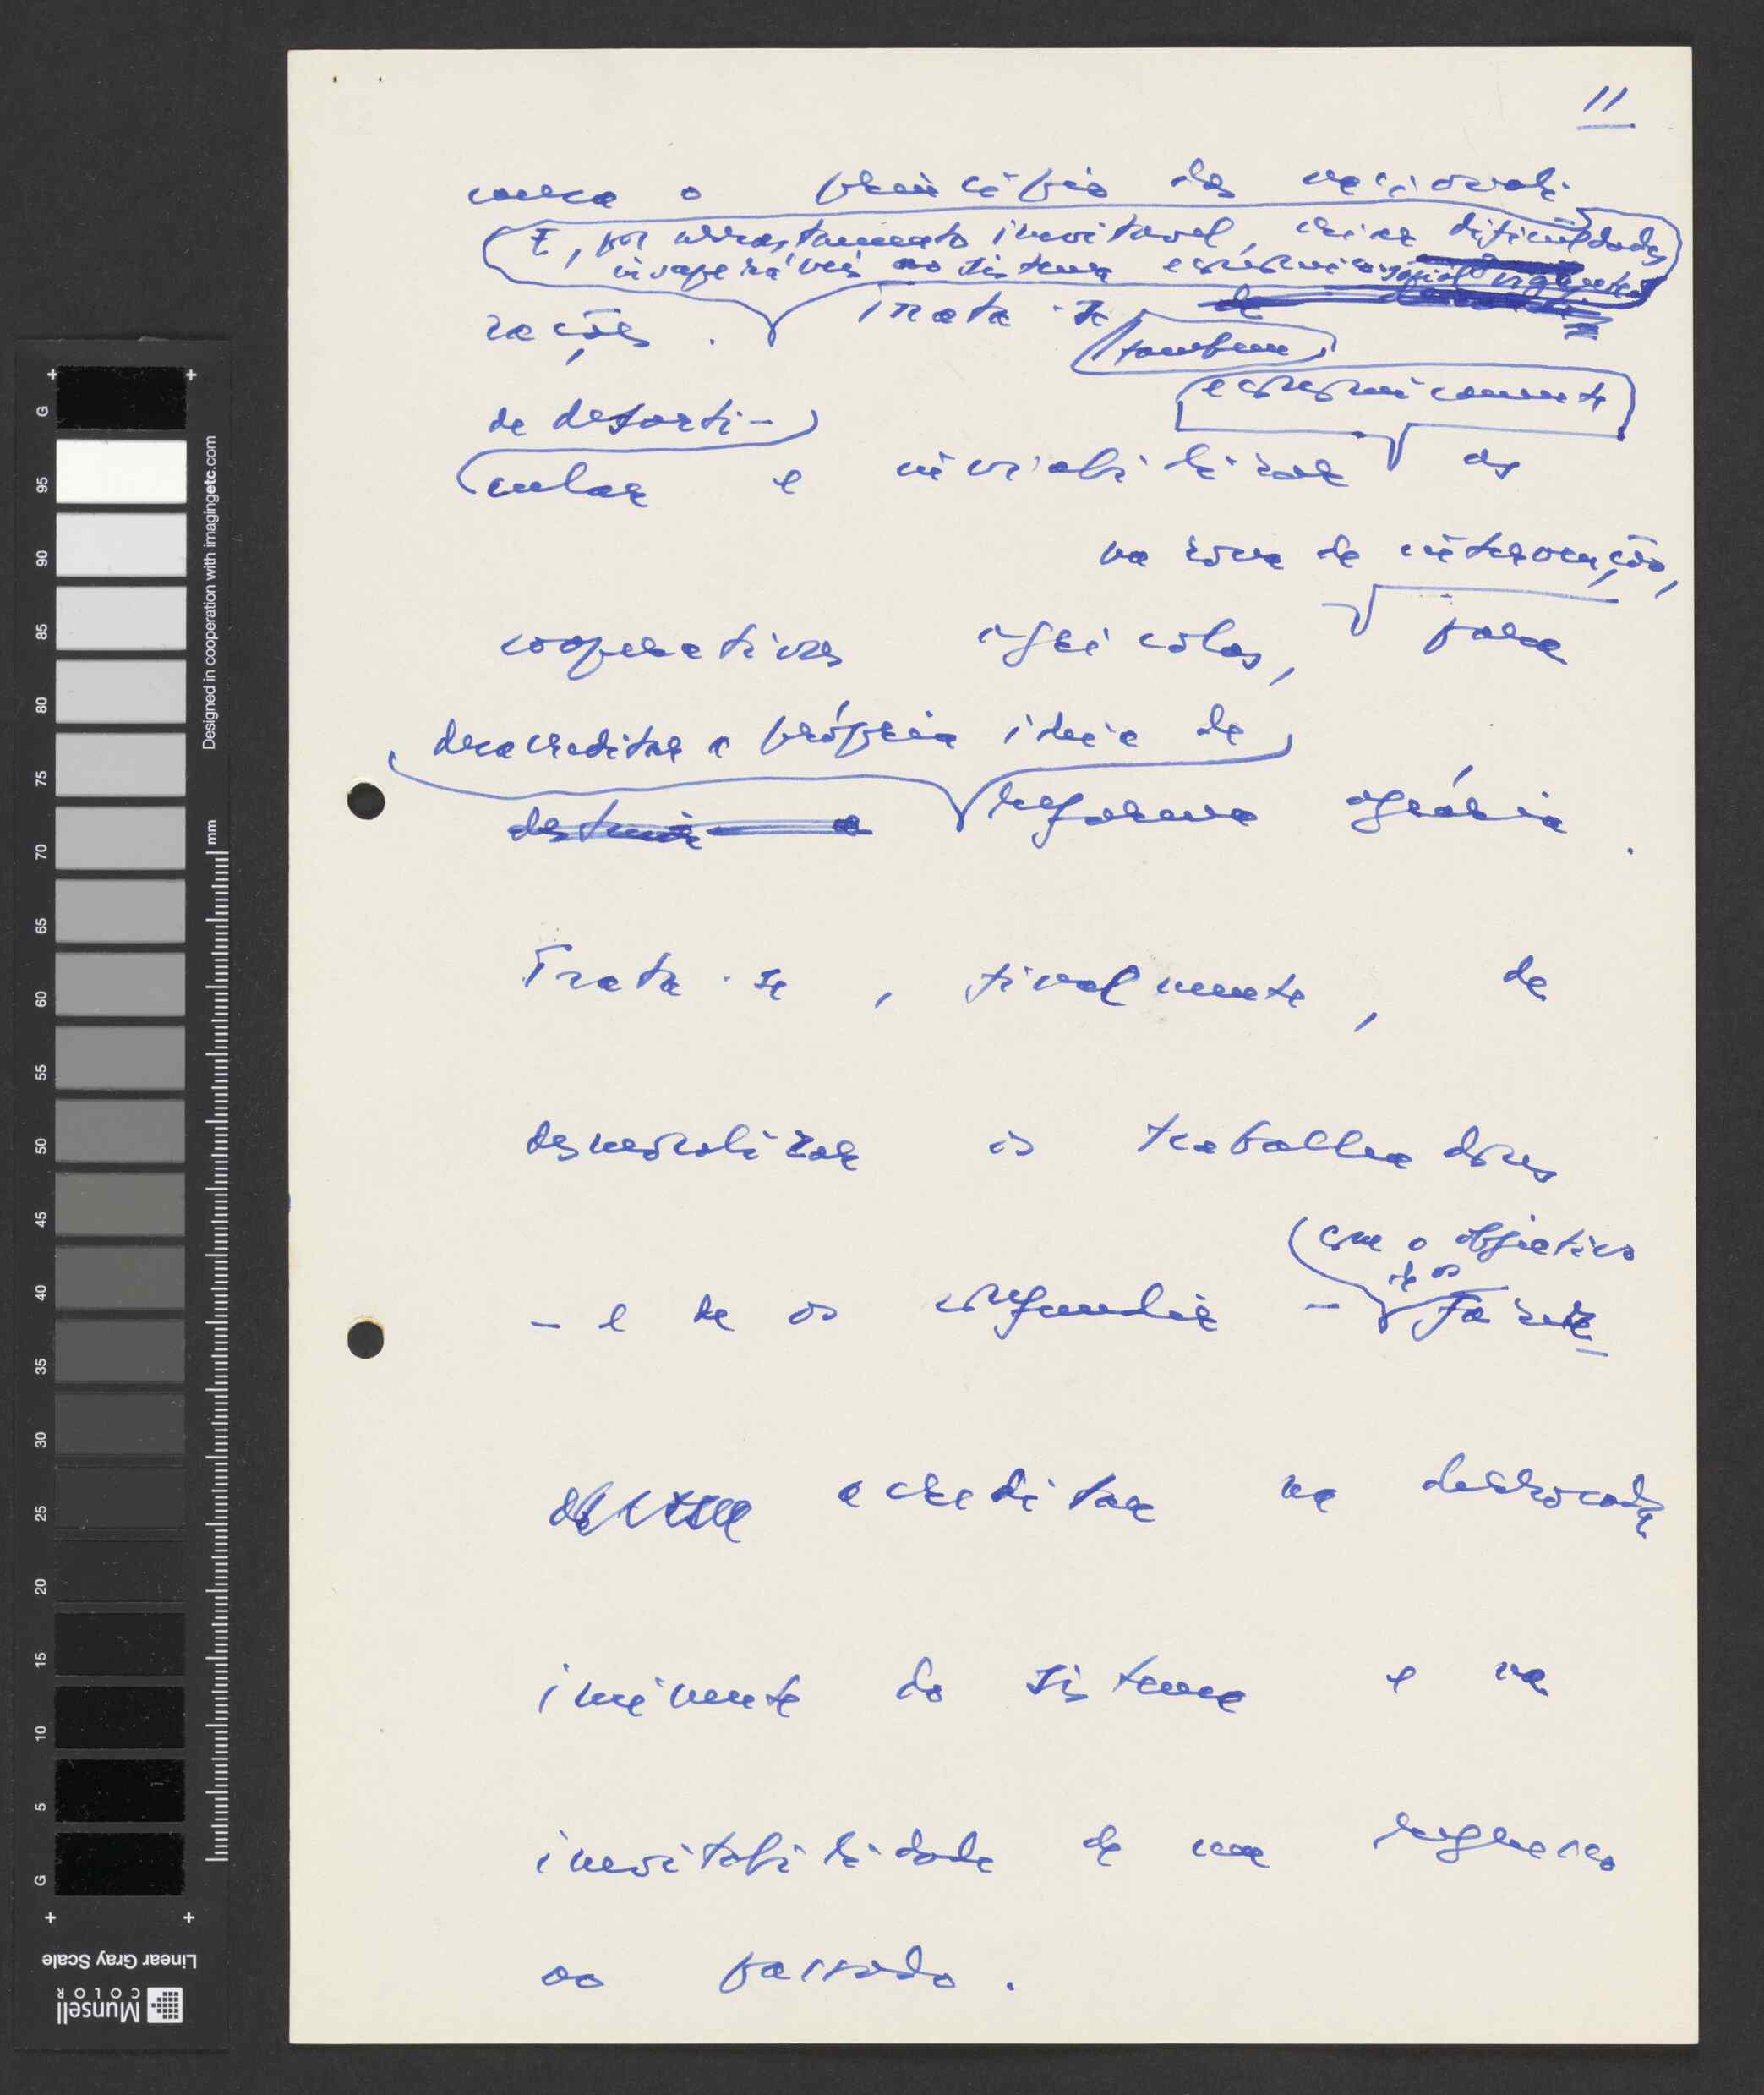 11
causa o princípio das nacionali-
E, por arrastamento inevitável, criar dificuldades
insuperáveis ao sistema económico-social vigente
zações. Trata-se de
também
economicamente
de desarti-
cular e inviabilizar as
na zona de intervenção,
cooperativas agrícolas, para
desacreditar a própria ideia de
destruir a reforma agrária.
Trata-se, finalmente, de
desmoralizar os trabalhadores
com o objectivo
de os
- e de os confundir - fazer
acreditar na derrocada
iminente do sistema e na
inevitabilidade de um regresso
ao passado.
G 95 90 85 80 75 70 65 60 55 50 45 40 35 30 25 20 15 10 5 G
Designed in cooperation with imagingetc.com
mm
Linear Gray Scale
Munsell
COLOR